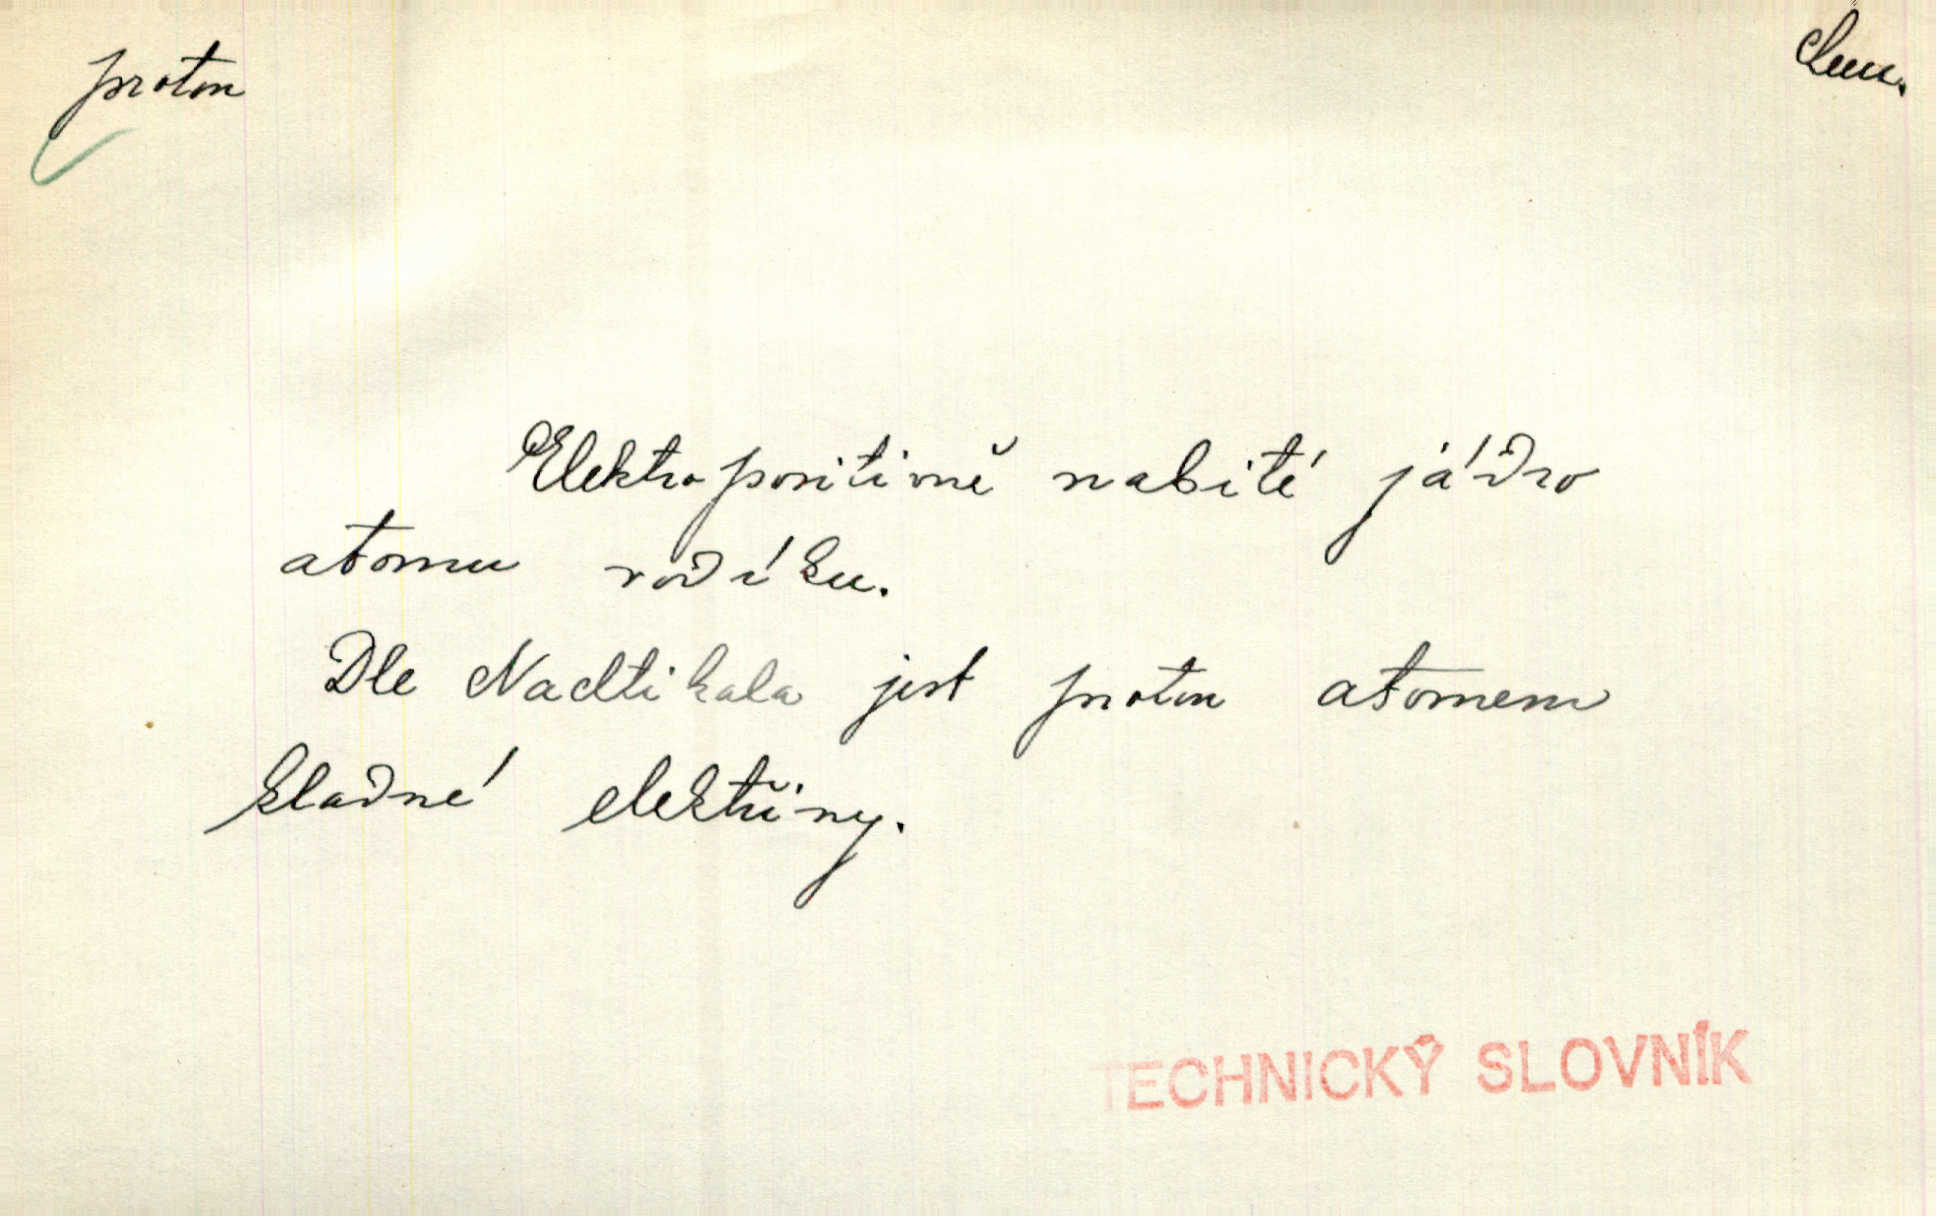 proton
chem.
Elektropositivně nabité jádro
atomu vodíku.
Dle Nachtikala jest proton atomem
kladné elektřiny.
TECHNICKÝ SLOVNÍK